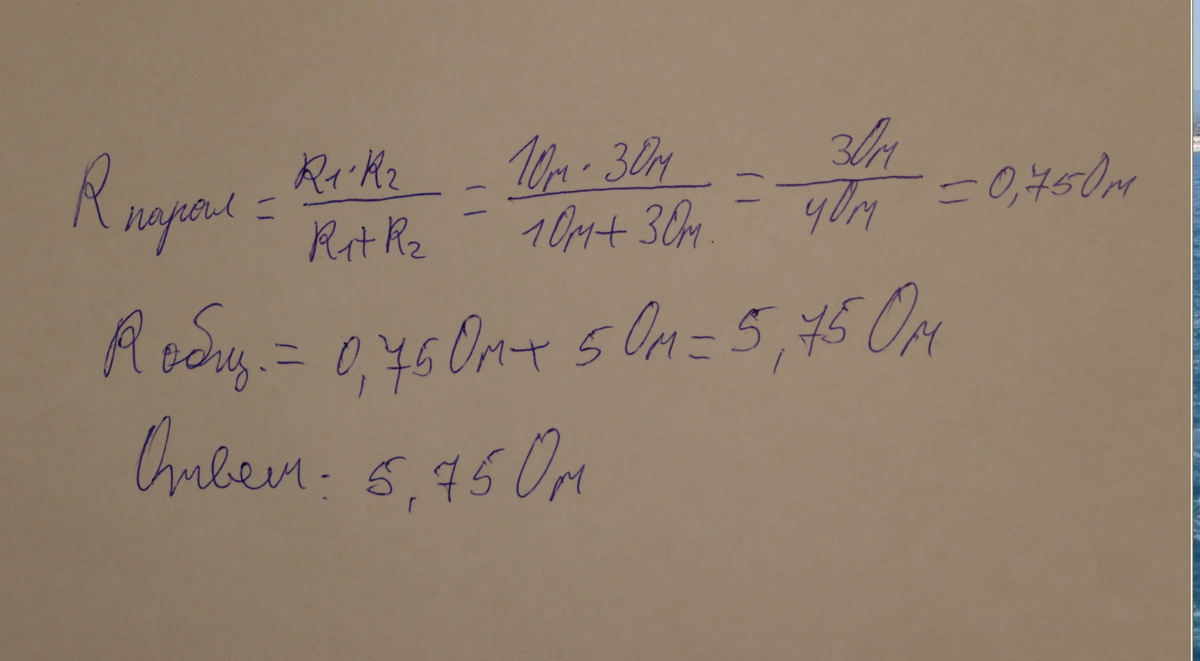 R парал = R1·R2 / R1+R2 = 1Ом · 3Ом / 1Ом + 3Ом = 3Ом / 4Ом = 0,75Ом
R общ. = 0,75Ом + 5Ом = 5,75Ом
Ответ: 5,75Ом